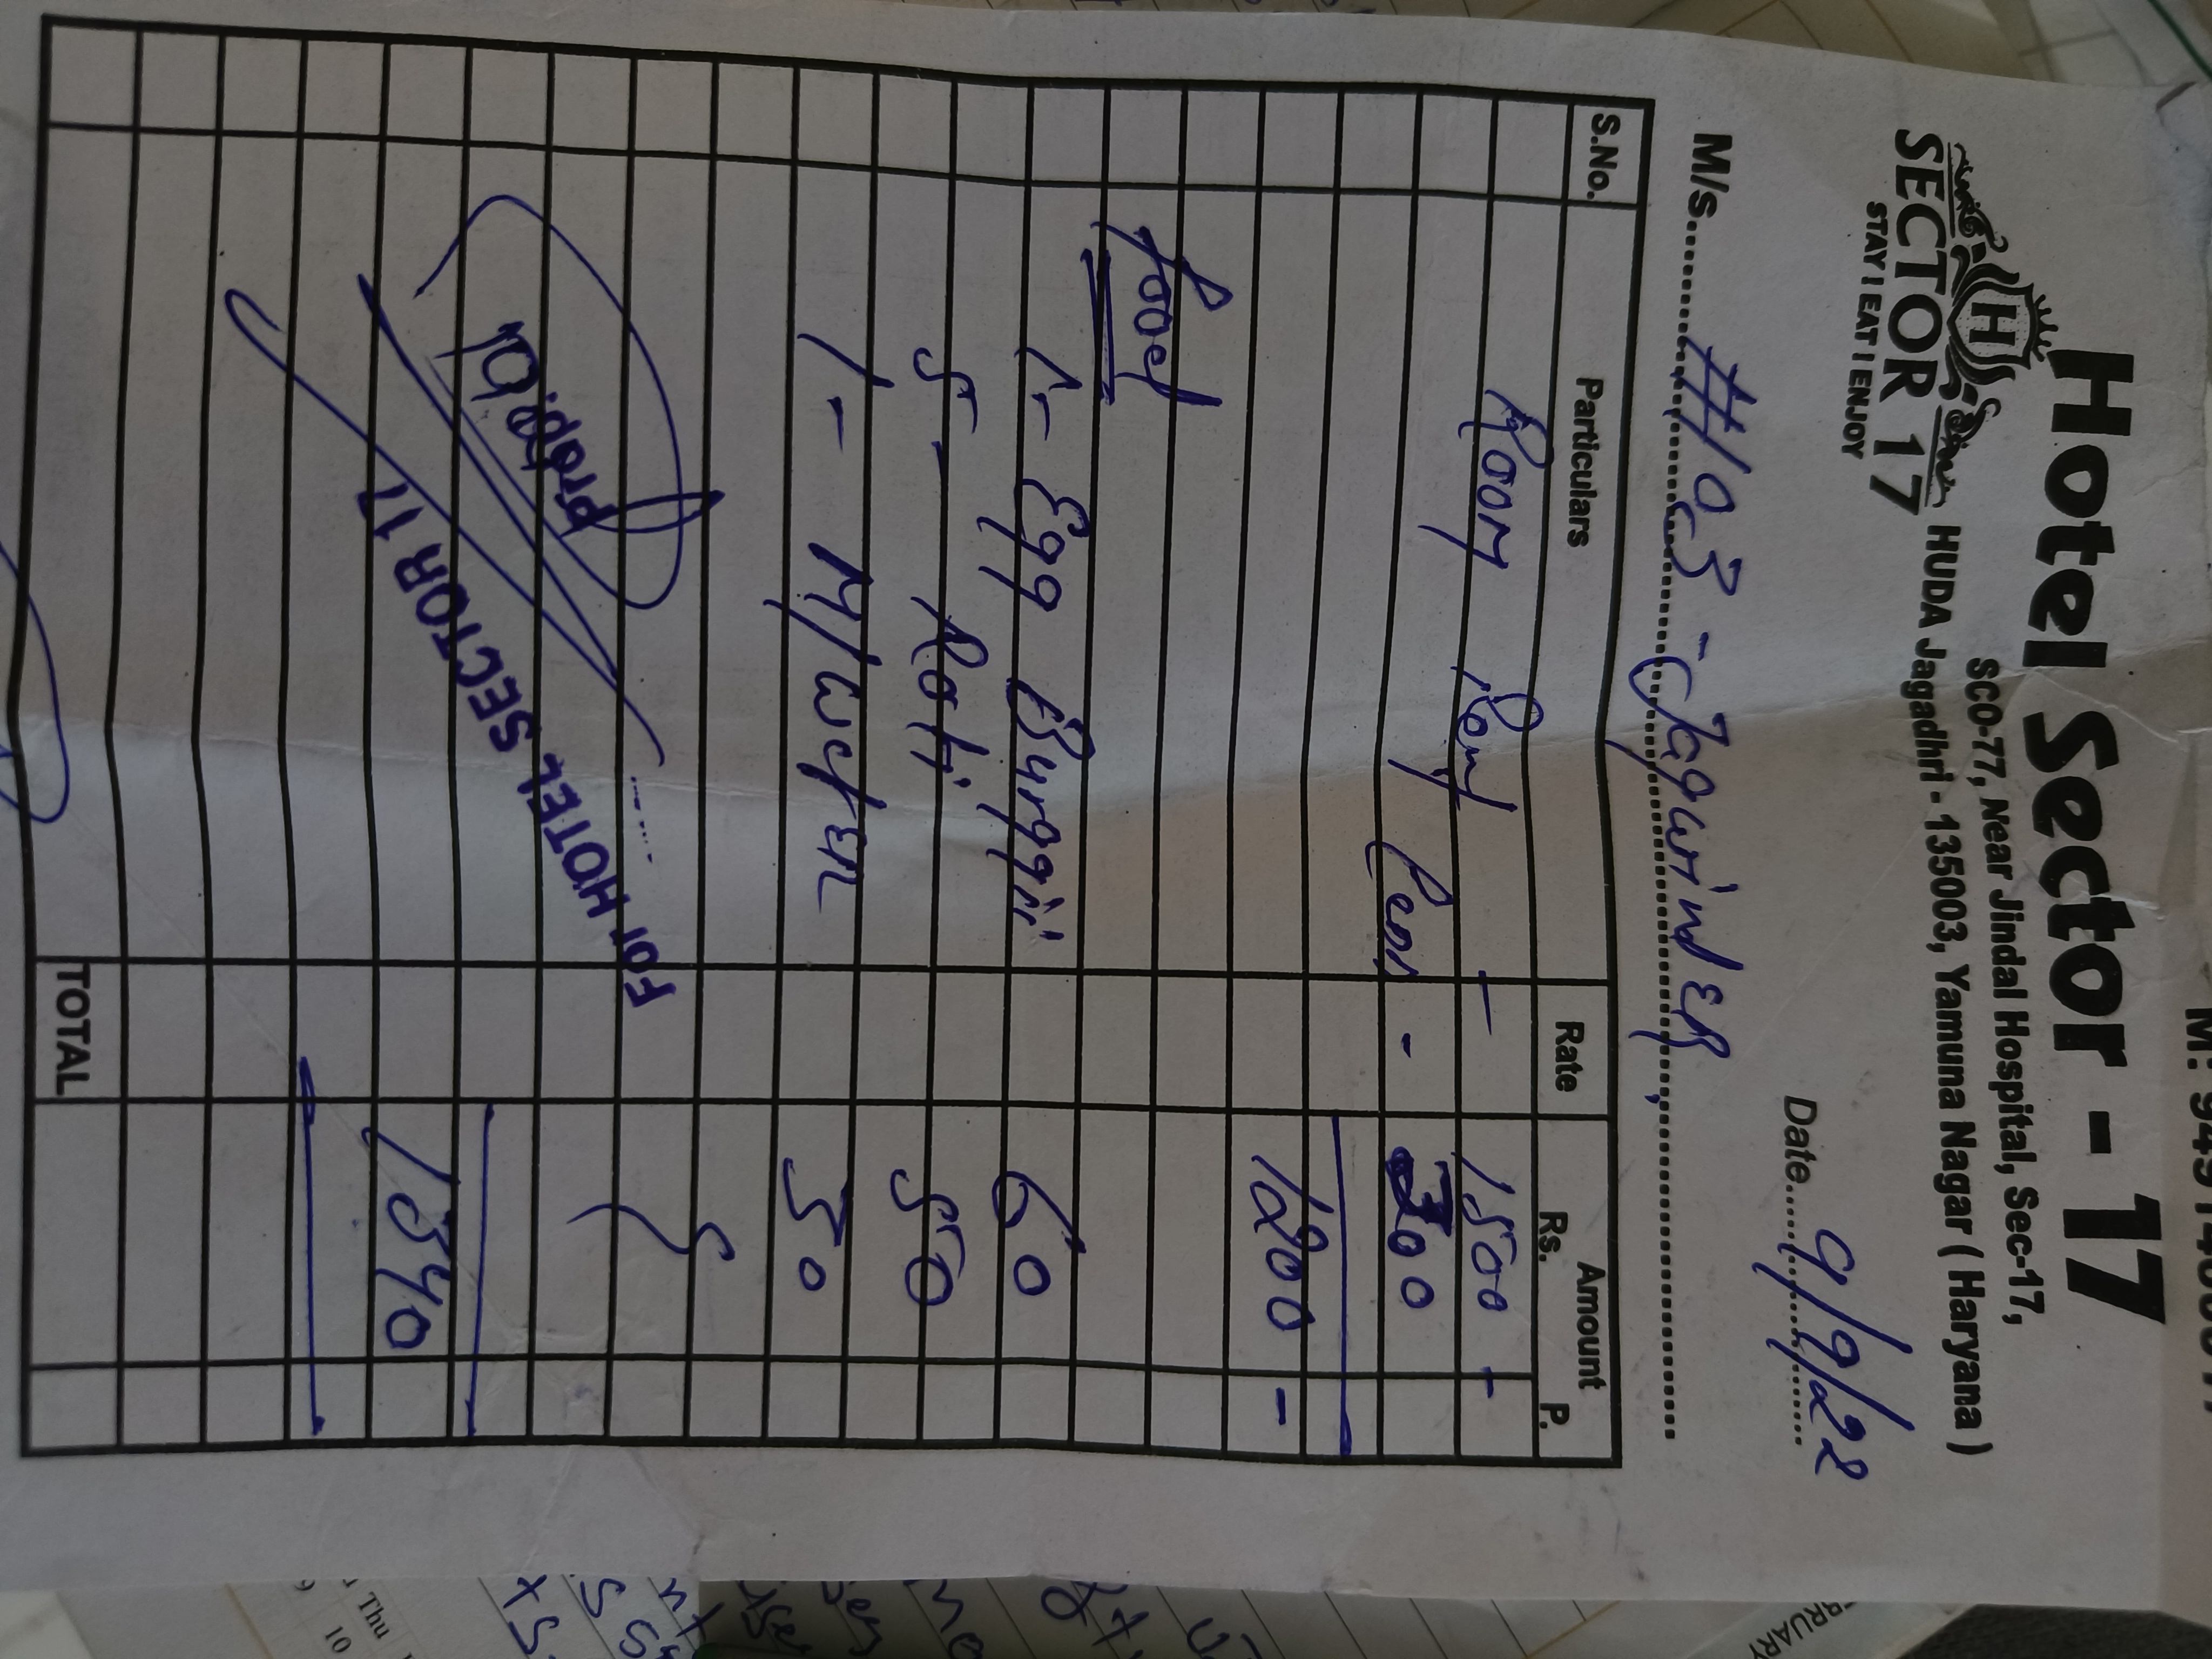 Hotel Sector - 17
SCO-77, Near Jindal Hospital, Sec-17,
HUDA Jagadhri - 135003, Yamuna Nagar ( Haryana )
H
SECTOR 17
STAY I EAT I ENJOY
Date.... 9/9/22
M/s. #103 - Jagwinder
S.No. Particulars Rate Amount
Rs. P.
Room - 1500 -
Less - 300
1200 -
Food
1 - Egg Burggi 60
5 - Roti 50
1 - M/Water 30
For HOTEL SECTOR 17
Prop.
1340
TOTAL
Thu
10